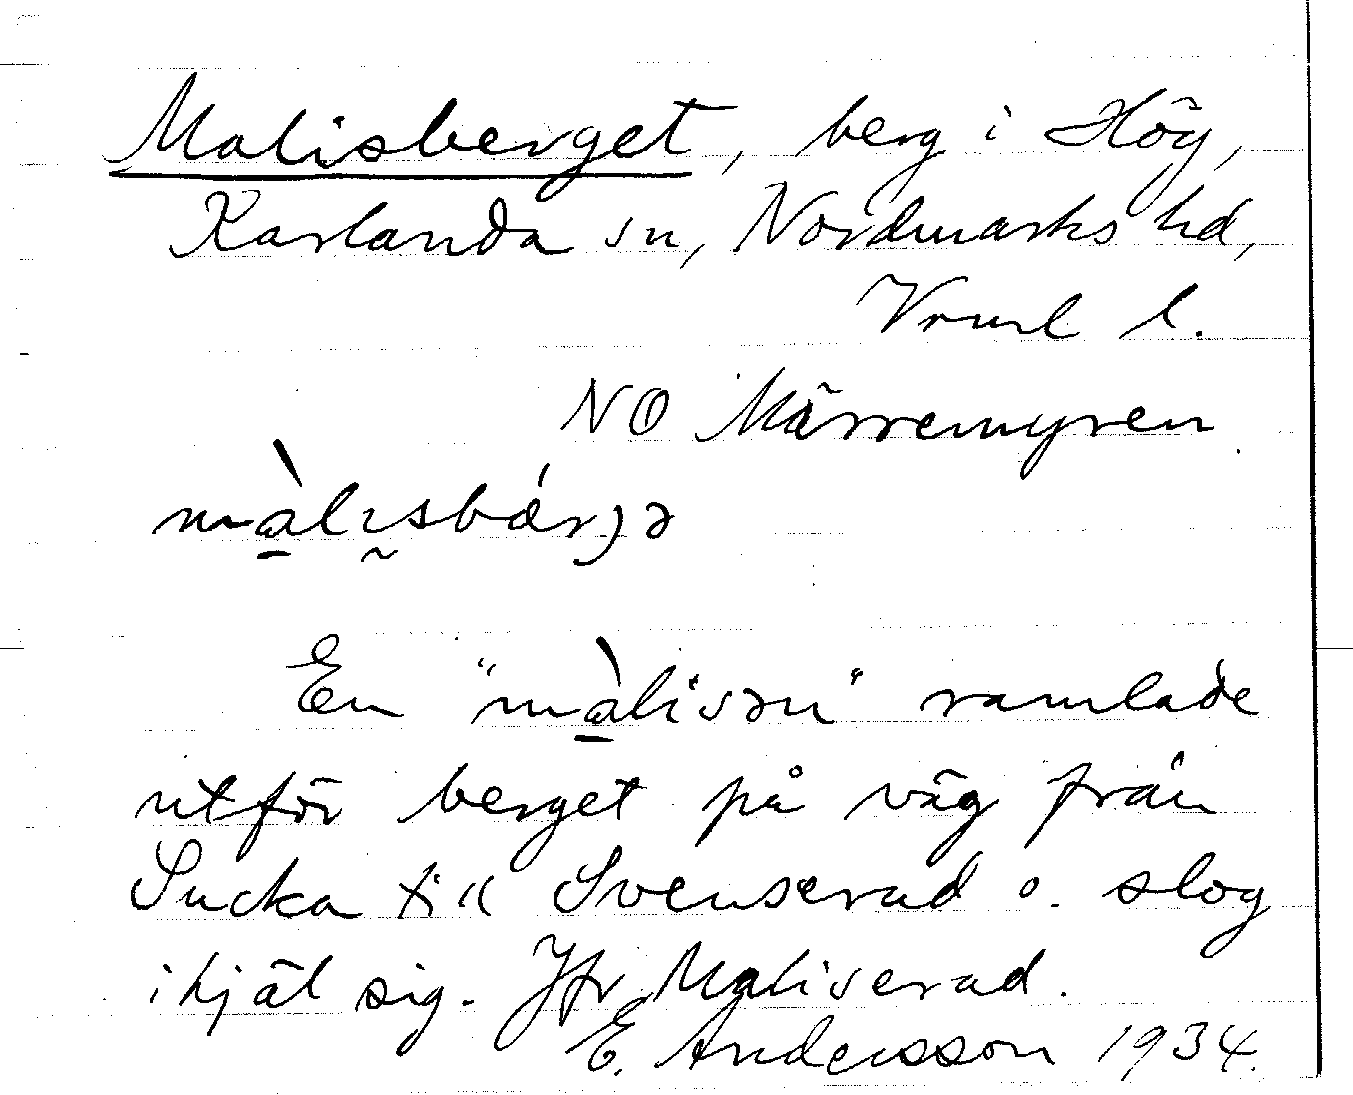 Malisberget, berg i Hög,
Karlanda sn, Nordmarks hd,
Vrml l.
NO Märremyren
màlisbárjə
En "màlisən" ramlade
utför berget på väg från
Sucka till Svenserud o. slog
ihjäl sig. Jfr Maliserud.
E. Andersson 1934.